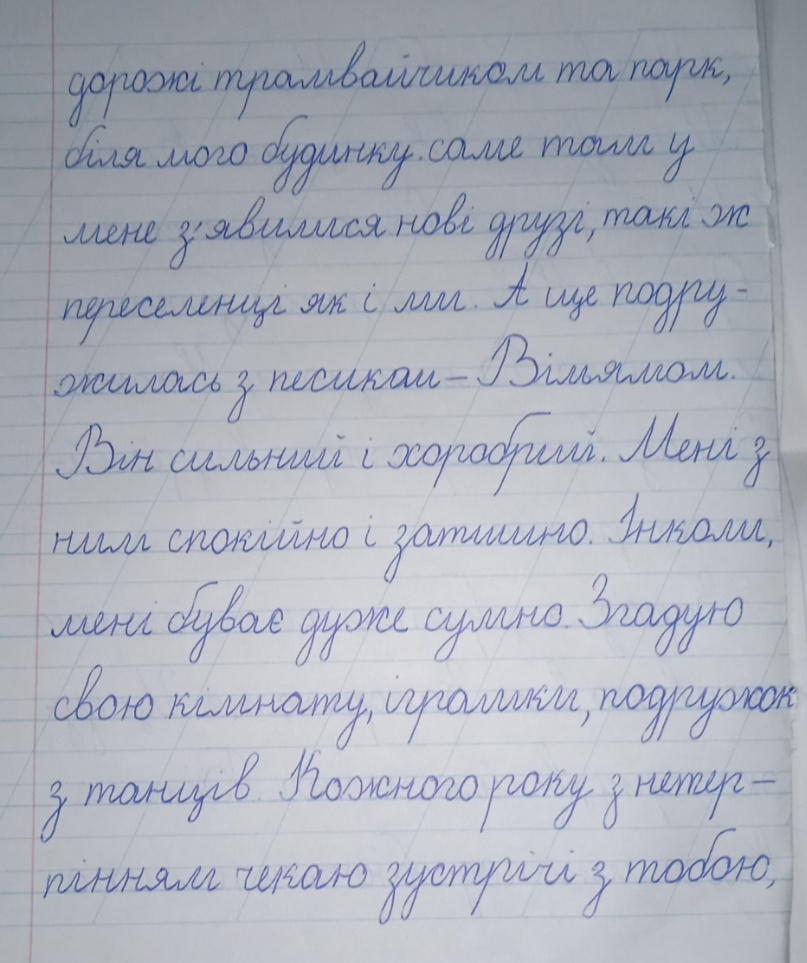 дорожі трамвайчиком та парк,
біля мого будинку. саме там у
мене з'явилися нові друзі, такі ж
переселенці як і ми. А ще подру-
жилась з песиком - Вільямом.
Він сильний і хоробрий. Мені з
ним спокійно і затишно. Інколи,
мені буває дуже сумно. Згадую
свою кімнату, іграшки, подружок
з танців. Кожного року з нетер-
пінням чекаю зустрічі з тобою,